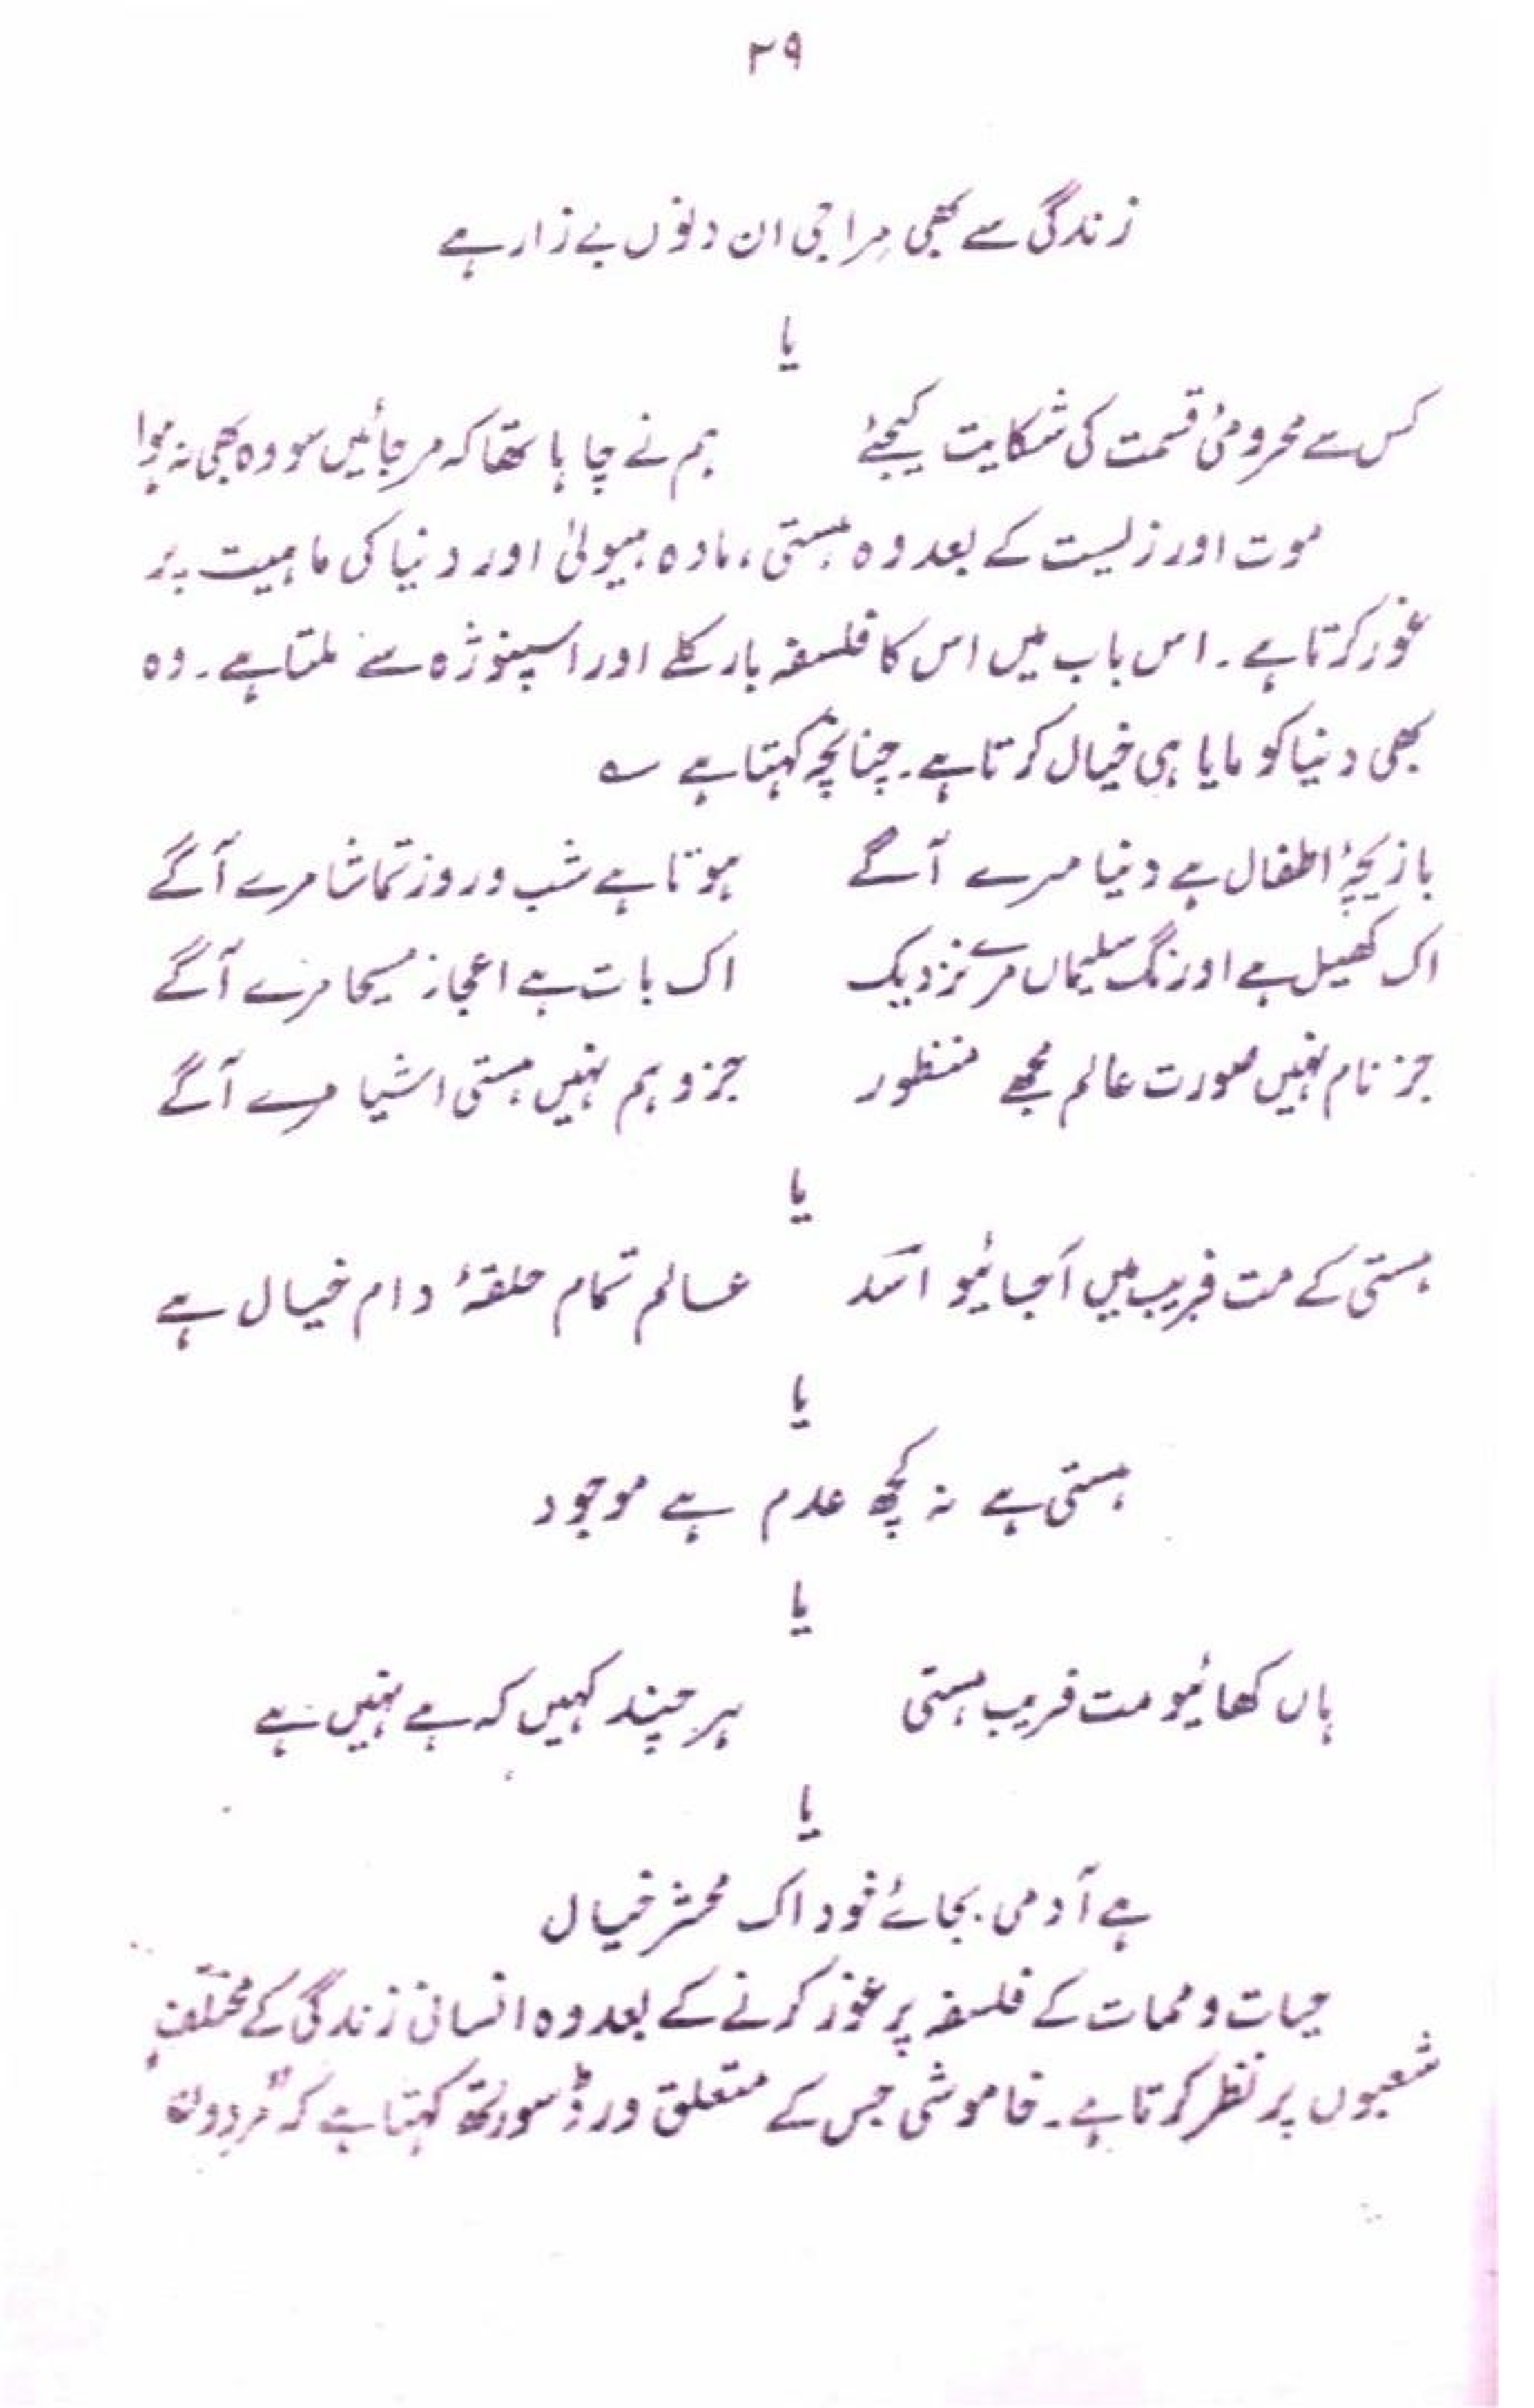 ۲۹
زندگی سے بھی مرا جی ان دنوں بے زار ہے
یا
کس سے محرومیٔ قسمت کی شکایت کیجئے ہم نے چاہا تھا کہ مر جائیں سو وہ بھی نہ ہوا
موت اور زیست کے بعد وہ ہستی، مادہ ہیولیٰ اور دنیا کی ماہیت پر
غور کرتا ہے۔ اس باب میں اس کا فلسفہ بارکلے اور اسپنوژہ سے ملتا ہے۔ وہ
بھی دنیا کو مایا ہی خیال کرتا ہے۔ چنانچہ کہتا ہے ؎
بازیچۂ اطفال ہے دنیا مرے آگے ہوتا ہے شب و روز تماشا مرے آگے
اک کھیل ہے اورنگ سلیماں مرے نزدیک اک بات ہے اعجاز مسیحا مرے آگے
جز نام نہیں صورت عالم مجھے منظور جز وہم نہیں ہستی اشیا مرے آگے
یا
ہستی کے مت فریب میں آجائیو اسد عالم تمام حلقۂ دام خیال ہے
یا
ہستی ہے نہ کچھ عدم ہے موجود
یا
ہاں کھائیو مت فریب ہستی ہر چند کہیں کہ ہے نہیں ہے
یا
ہے آدمی بجائے خود اک محشر خیال
حیات و ممات کے فلسفہ پر غور کرنے کے بعد وہ انسانی زندگی کے مختلف
شعبوں پر نظر کرتا ہے۔ خاموشی جس کے متعلق ورڈسورتھ کہتا ہے کہ